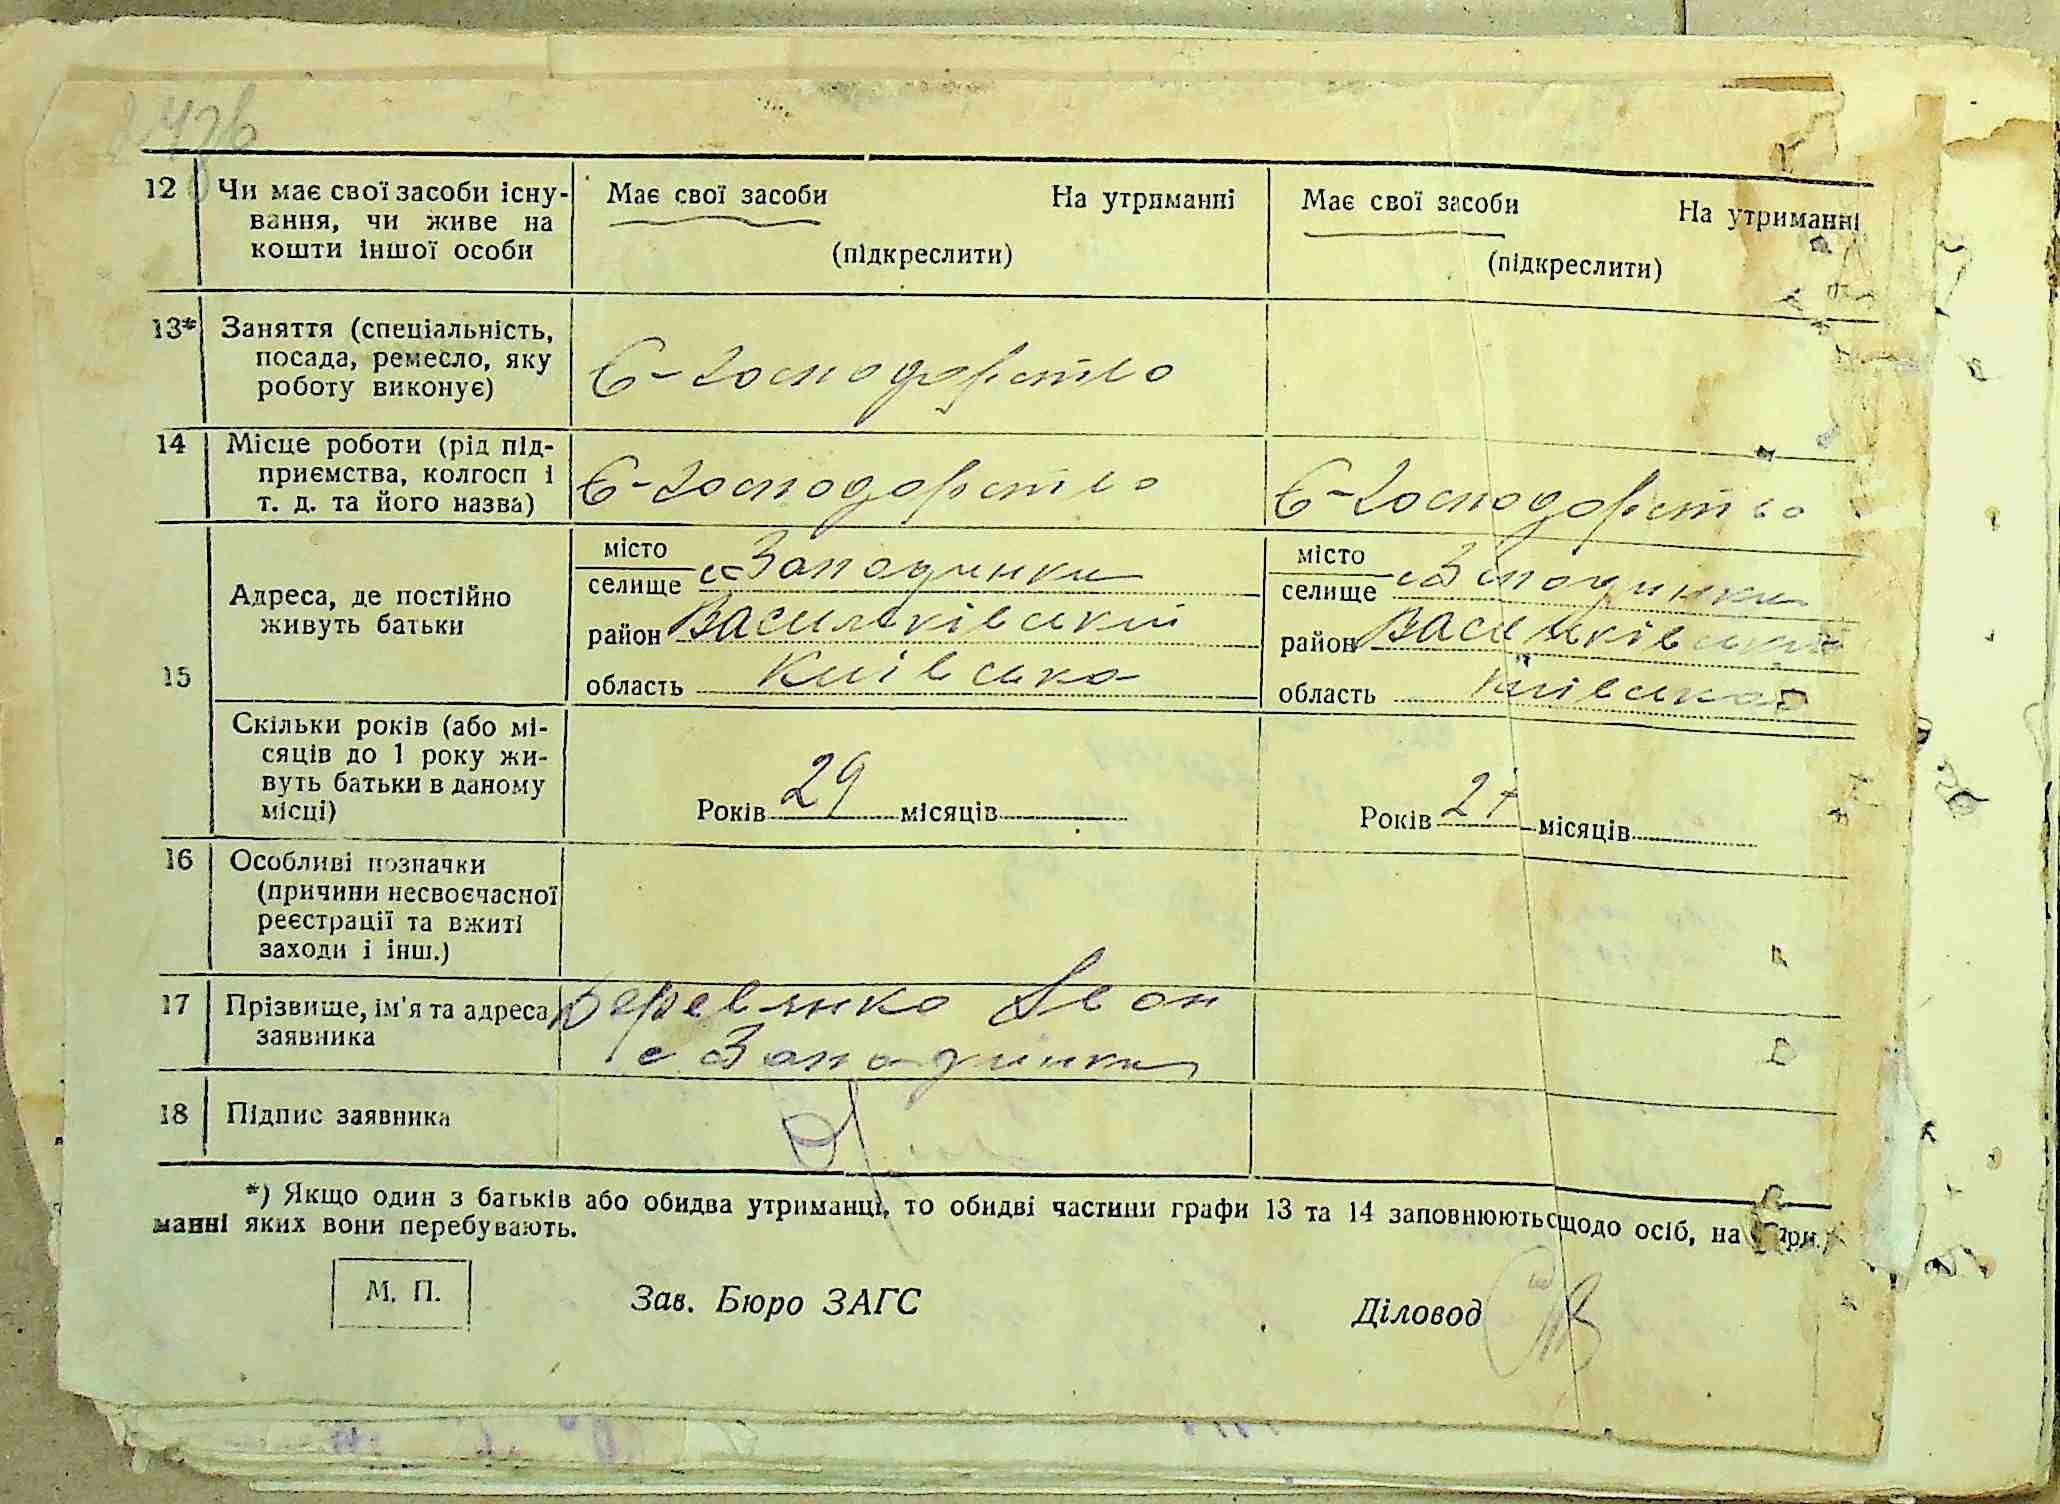 12 Чи має свої засоби існу-
вання, чи живе на
кошти іншої особи
Має свої засоби На утриманні
(підкреслити)
Має свої засоби На утриманні
(підкреслити)
13* Заняття (спеціальність,
посада, ремесло, яку
роботу виконує)
Є-господорство
14 Місце роботи (рід під-
приємства, колгосп і
т. д. та його назва)
Є-господорство
Є-господорство
15
Адреса, де постійно
живуть батьки
місто
селище с Западинки
район Васильківський
область Київська
місто
селище с Западинки
район Васильківський
область Київська
Скільки років (або мі-
сяців до 1 року жи-
вуть батьки в даному
місці)
Років 29 місяців
Років 27 місяців
16 Особливі позначки
(причини несвоєчасної
реєстрації та вжиті
заходи і інш.)
17 Прізвище, ім'я та адреса
заявника
Деревянко Івон
с Западинки
18 Підпис заявника
*) Якщо один з батьків або обидва утриманці, то обидві частини графи 13 та 14 заповнюються щодо осіб, на утри-
манні яких вони перебувають.
М. П.
Зав. Бюро ЗАГС
Діловод